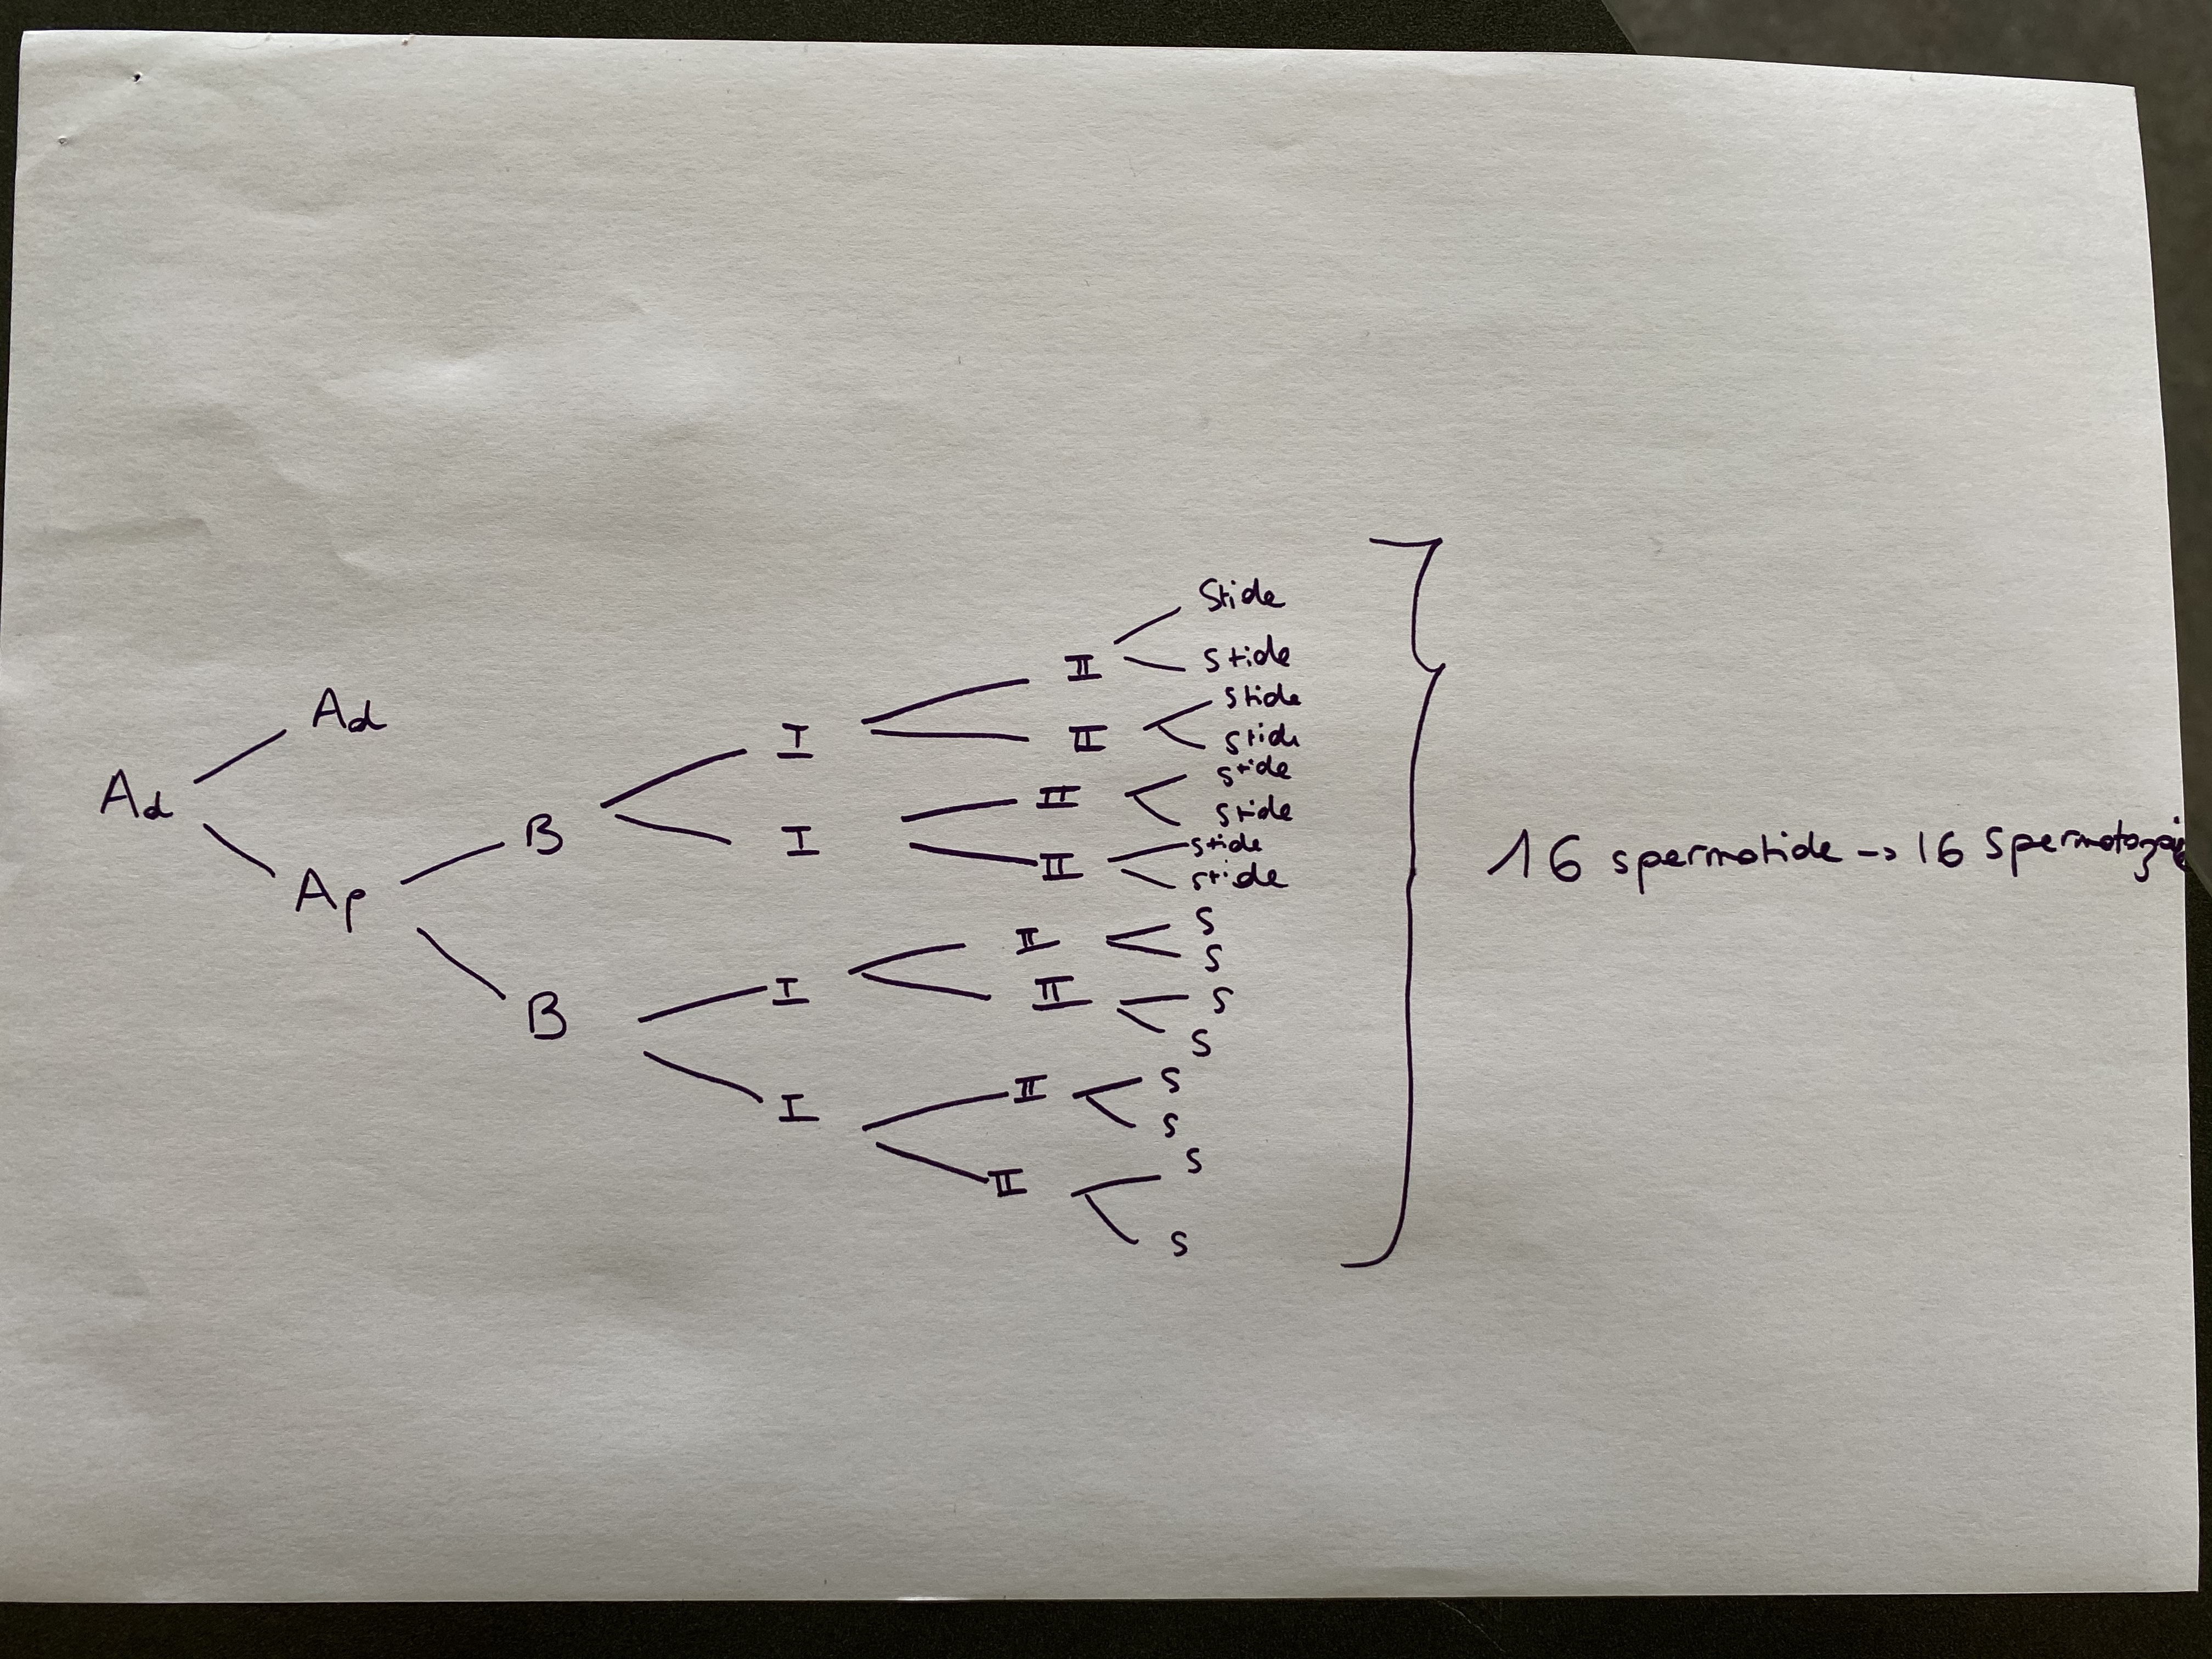 Ad
Ad
Ap
B
B
I
I
I
I
II
II
II
II
II
II
II
II
Stide
stide
stide
stide
stide
stide
stide
stide
s
s
s
s
s
s
s
s
16 spermatide -> 16